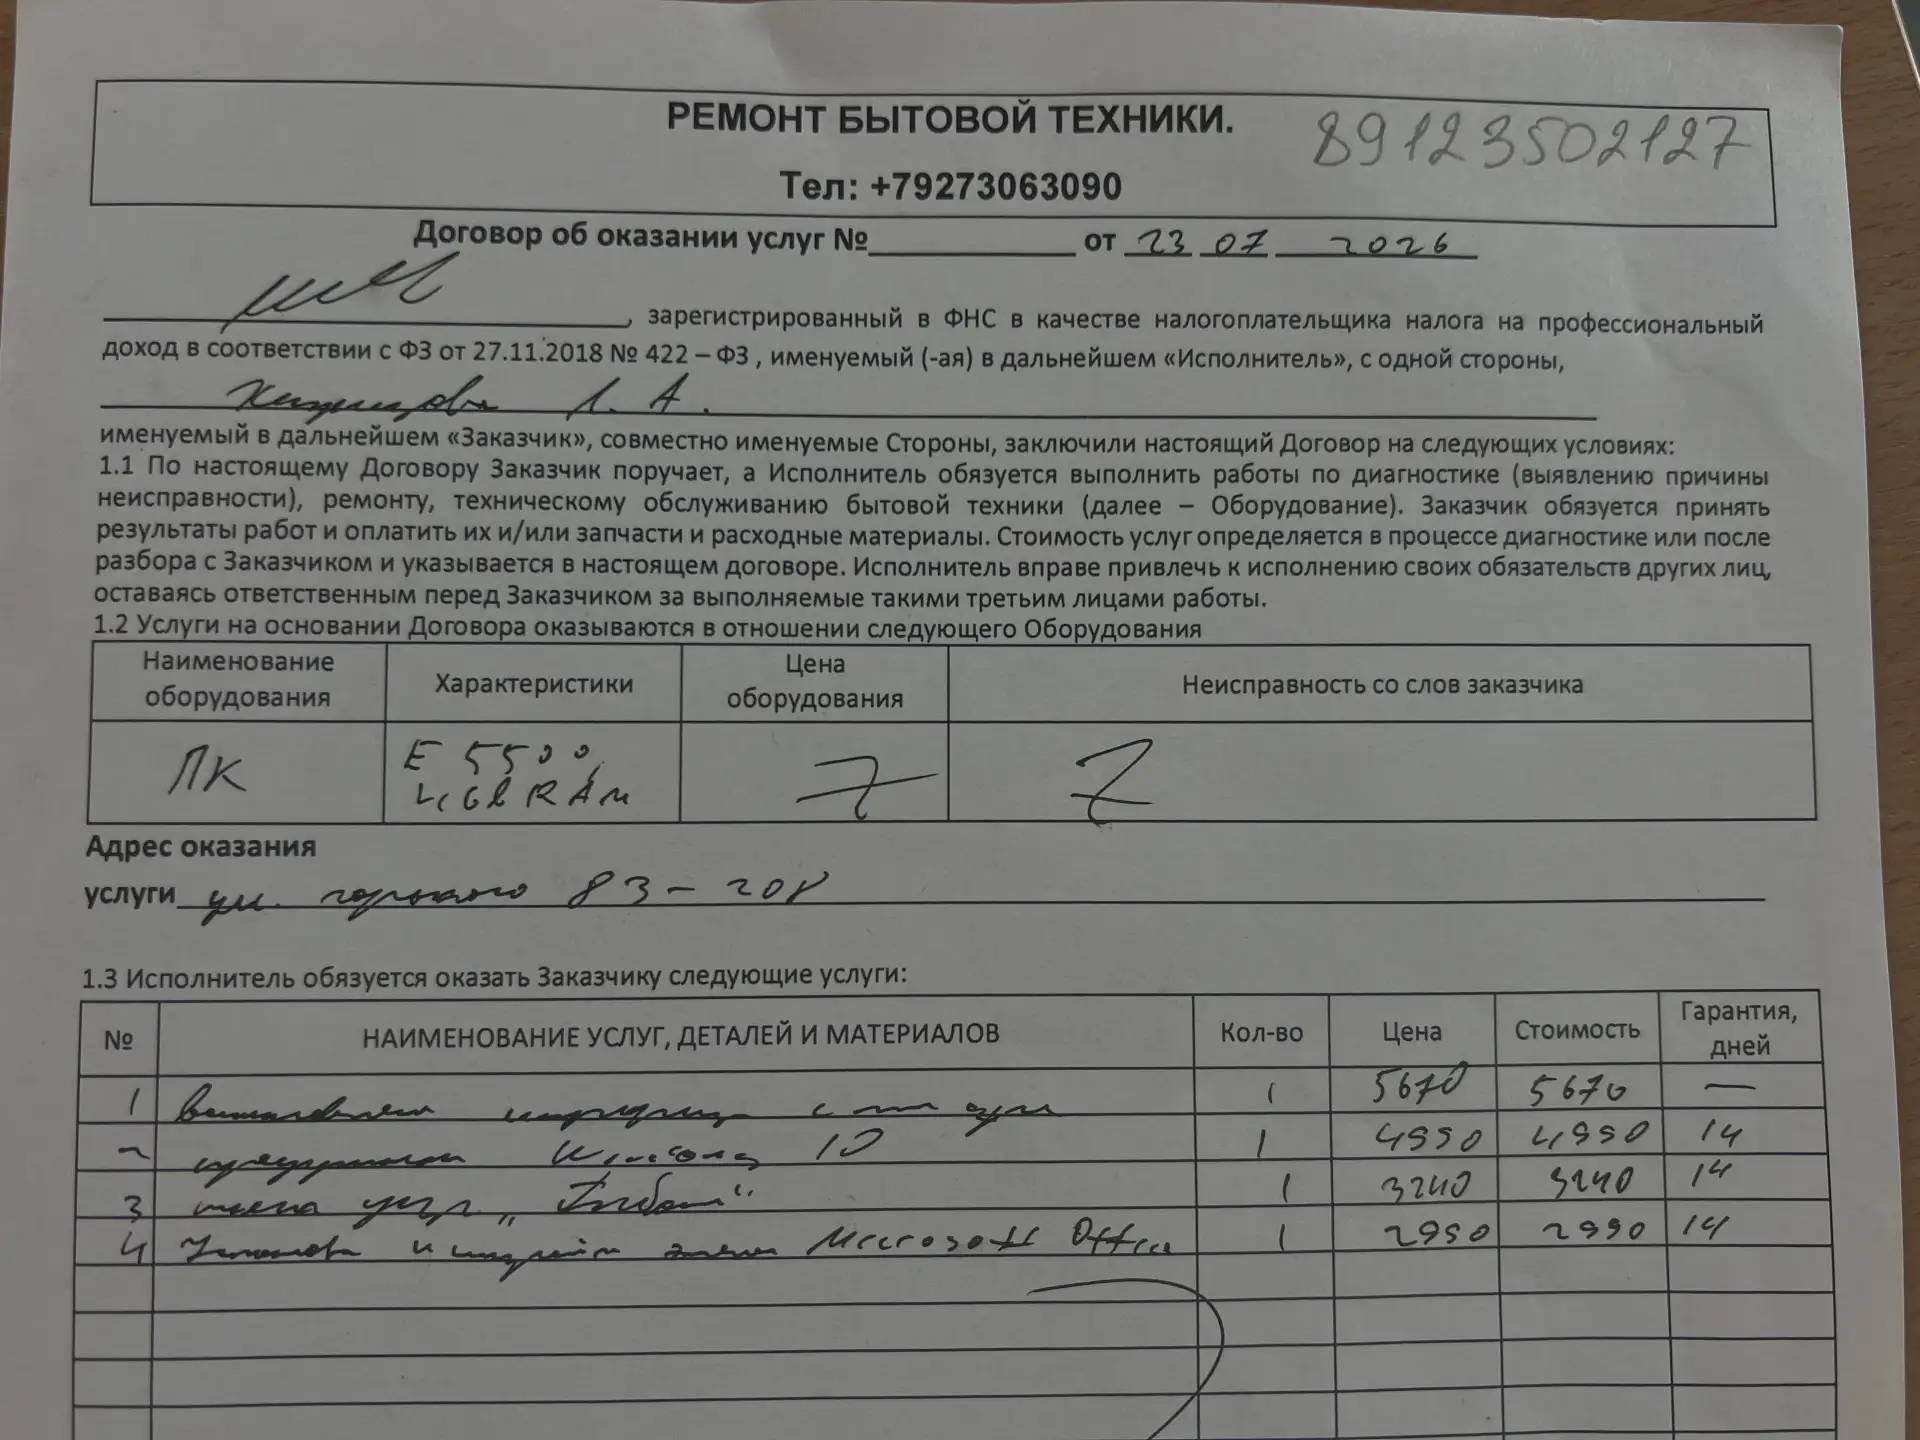 РЕМОНТ БЫТОВОЙ ТЕХНИКИ.
89123502127
Тел: +79273063090
Договор об оказании услуг №__________ от 23 07 2026
, зарегистрированный в ФНС в качестве налогоплательщика налога на профессиональный
доход в соответствии с ФЗ от 27.11.2018 № 422 – ФЗ , именуемый (-ая) в дальнейшем «Исполнитель», с одной стороны,
Л. А.
именуемый в дальнейшем «Заказчик», совместно именуемые Стороны, заключили настоящий Договор на следующих условиях:
1.1 По настоящему Договору Заказчик поручает, а Исполнитель обязуется выполнить работы по диагностике (выявлению причины
неисправности), ремонту, техническому обслуживанию бытовой техники (далее – Оборудование). Заказчик обязуется принять
результаты работ и оплатить их и/или запчасти и расходные материалы. Стоимость услуг определяется в процессе диагностике или после
разбора с Заказчиком и указывается в настоящем договоре. Исполнитель вправе привлечь к исполнению своих обязательств других лиц,
оставаясь ответственным перед Заказчиком за выполняемые такими третьим лицами работы.
1.2 Услуги на основании Договора оказываются в отношении следующего Оборудования
Наименование оборудования Характеристики Цена оборудования Неисправность со слов заказчика
ПК E 5500,
4 GB RAM
Адрес оказания
услуги ул. Горького 83 - 208
1.3 Исполнитель обязуется оказать Заказчику следующие услуги:
№ НАИМЕНОВАНИЕ УСЛУГ, ДЕТАЛЕЙ И МАТЕРИАЛОВ Кол-во Цена Стоимость Гарантия, дней
1 1 5670 5670 —
2 Windows 10 1 4990 4990 14
3 1 3240 3240 14
4 Установка и Microsoft Office 1 2990 2990 14